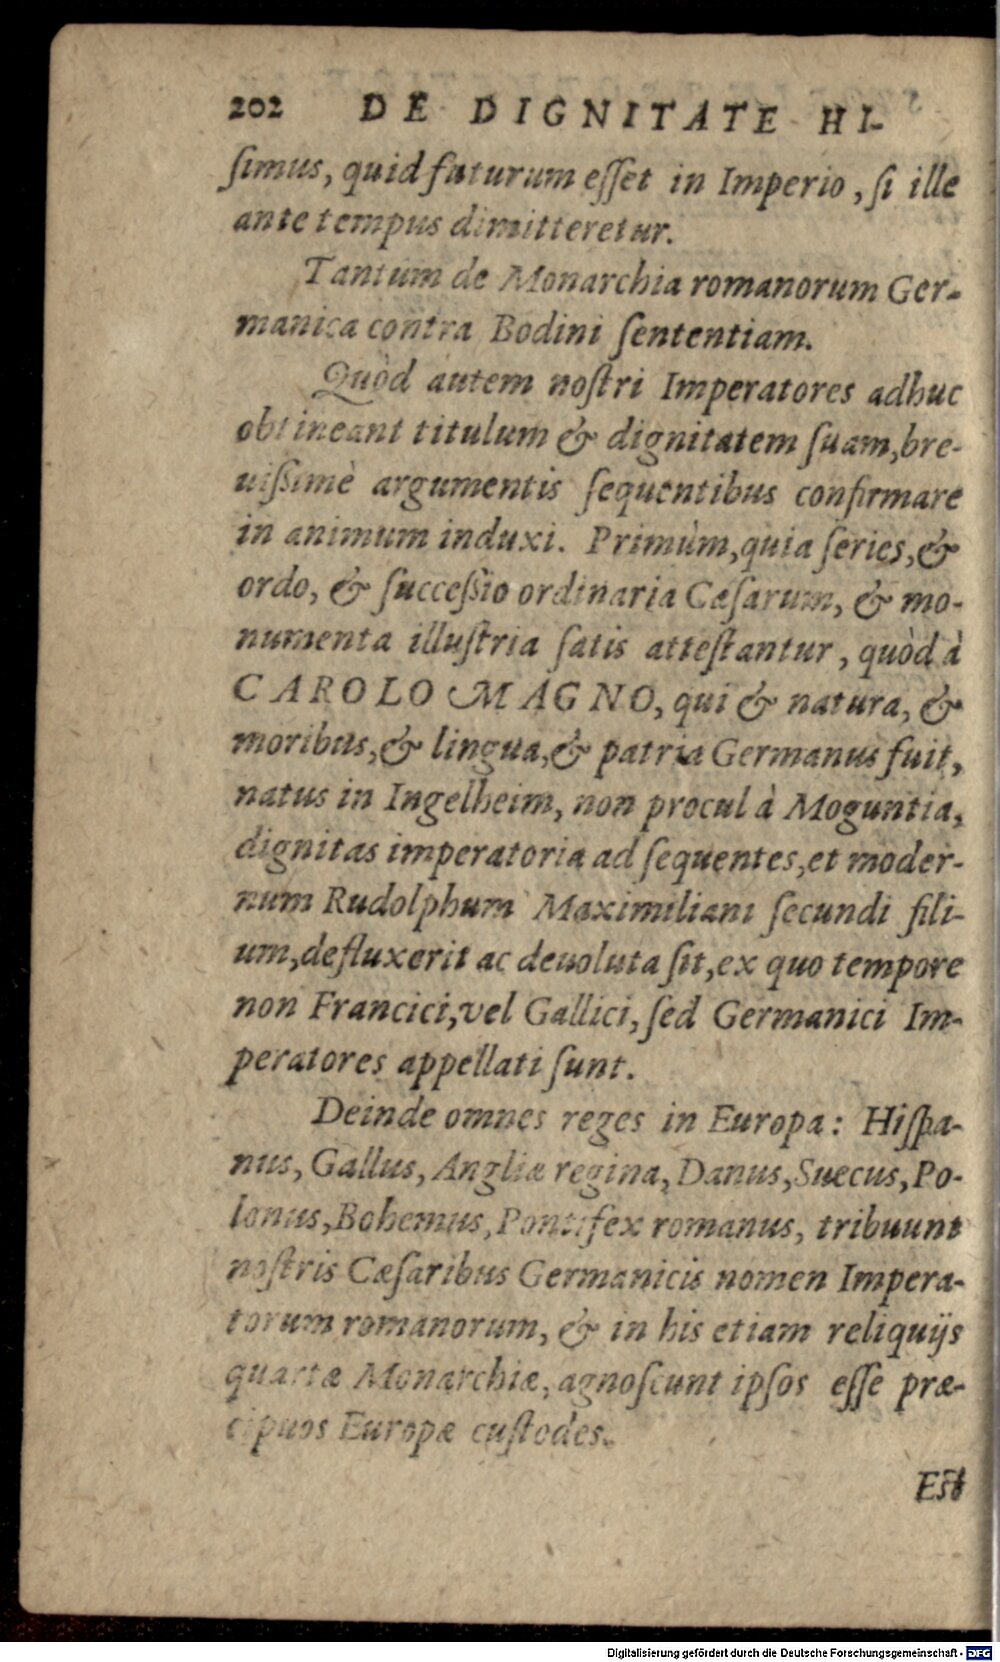 202 DE DIGNITATE HI-
ſimus, quid futurum eſſet in Imperio, ſi ille
ante tempus dimitteretur.
Tantum de Monarchia romanorum Ger-
manica contra Bodini ſententiam.
Quòd autem noſtri Imperatores adhuc
obtineant titulum & dignitatem ſuam, bre-
uiſsimè argumentis ſequentibus confirmare
in animum induxi. Primùm, quia ſeries, &
ordo, & ſucceſsio ordinaria Cæſarum, & mo-
numenta illuſtria ſatis atteſtantur, quòd à
CAROLO MAGNO, qui & natura, &
moribus, & lingua, & patria Germanus fuit,
natus in Ingelheim, non procul à Moguntia,
dignitas imperatoria ad ſequentes, et moder-
num Rudolphum Maximiliani ſecundi fili-
um, defluxerit ac deuoluta ſit, ex quo tempore
non Francici, vel Gallici, ſed Germanici Im-
peratores appellati ſunt.
Deinde omnes reges in Europa: Hiſpa-
nus, Gallus, Angliæ regina, Danus, Suecus, Po-
lonus, Bohemus, Pontifex romanus, tribuunt
noſtris Cæſaribus Germanicis nomen Impera-
torum romanorum, & in his etiam reliquijs
quartæ Monarchiæ, agnoſcunt ipſos eſſe præ-
cipuos Europæ cuſtodes.
Eſt
Digitalisierung gefördert durch die Deutsche Forschungsgemeinschaft - DFG